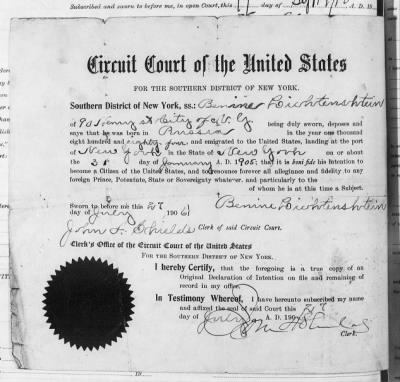 Subscribed and sworn to before me, in open Court, this day of A. D. 19
Circuit Court of the United States
FOR THE SOUTHERN DISTRICT OF NEW YORK.
Southern District of New York, ss.: Benine Lichtenshtein
of 90 st City of N. Y. being duly sworn, deposes
and says that he was born in Russia in the year one thousand
eight hundred and eighty four, and emigrated to the United States, landing at the port
of New York in the State of New York on or about
the day of January A. D. 1905; that it is bona fide his intention to
become a Citizen of the United States, and to renounce forever all allegiance and fidelity to any
foreign Prince, Potentate, State or Sovereignty whatever, and particularly to the
of whom he is at this time a Subject.
Sworn to before me this 27
day of July 1906 Benine Lichtenshtein
John A. Shields Clerk of said Circuit Court.
Clerk's Office of the Circuit Court of the United States
FOR THE SOUTHERN DISTRICT OF NEW YORK.
I hereby Certify, that the foregoing is a true copy of an
Original Declaration of Intention on file and remaining of
record in my office.
In Testimony Whereof, I have hereunto subscribed my name
and affixed the seal of said Court this 27
day of July A. D. 190
Clerk.
19